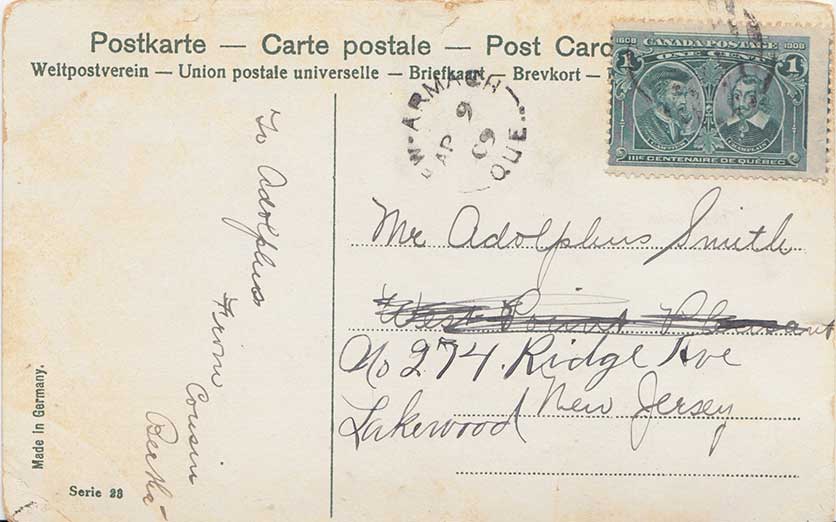 Postkarte — Carte postale — Post Card
Weltpostverein — Union postale universelle — Briefkaart — Brevkort —
W-ARMAGH
AP 9
09
QUE
1608 CANADA POSTAGE 1908
1 ONE CENT 1
CARTIER CHAMPLAIN
IIIe CENTENAIRE DE QUÉBEC
To Adolphus
From
Cousin
Mr Adolphus Smith
West Point Pleasant
No 274. Ridge Ave
New Jersey
Lakewood
Made in Germany.
Serie 23